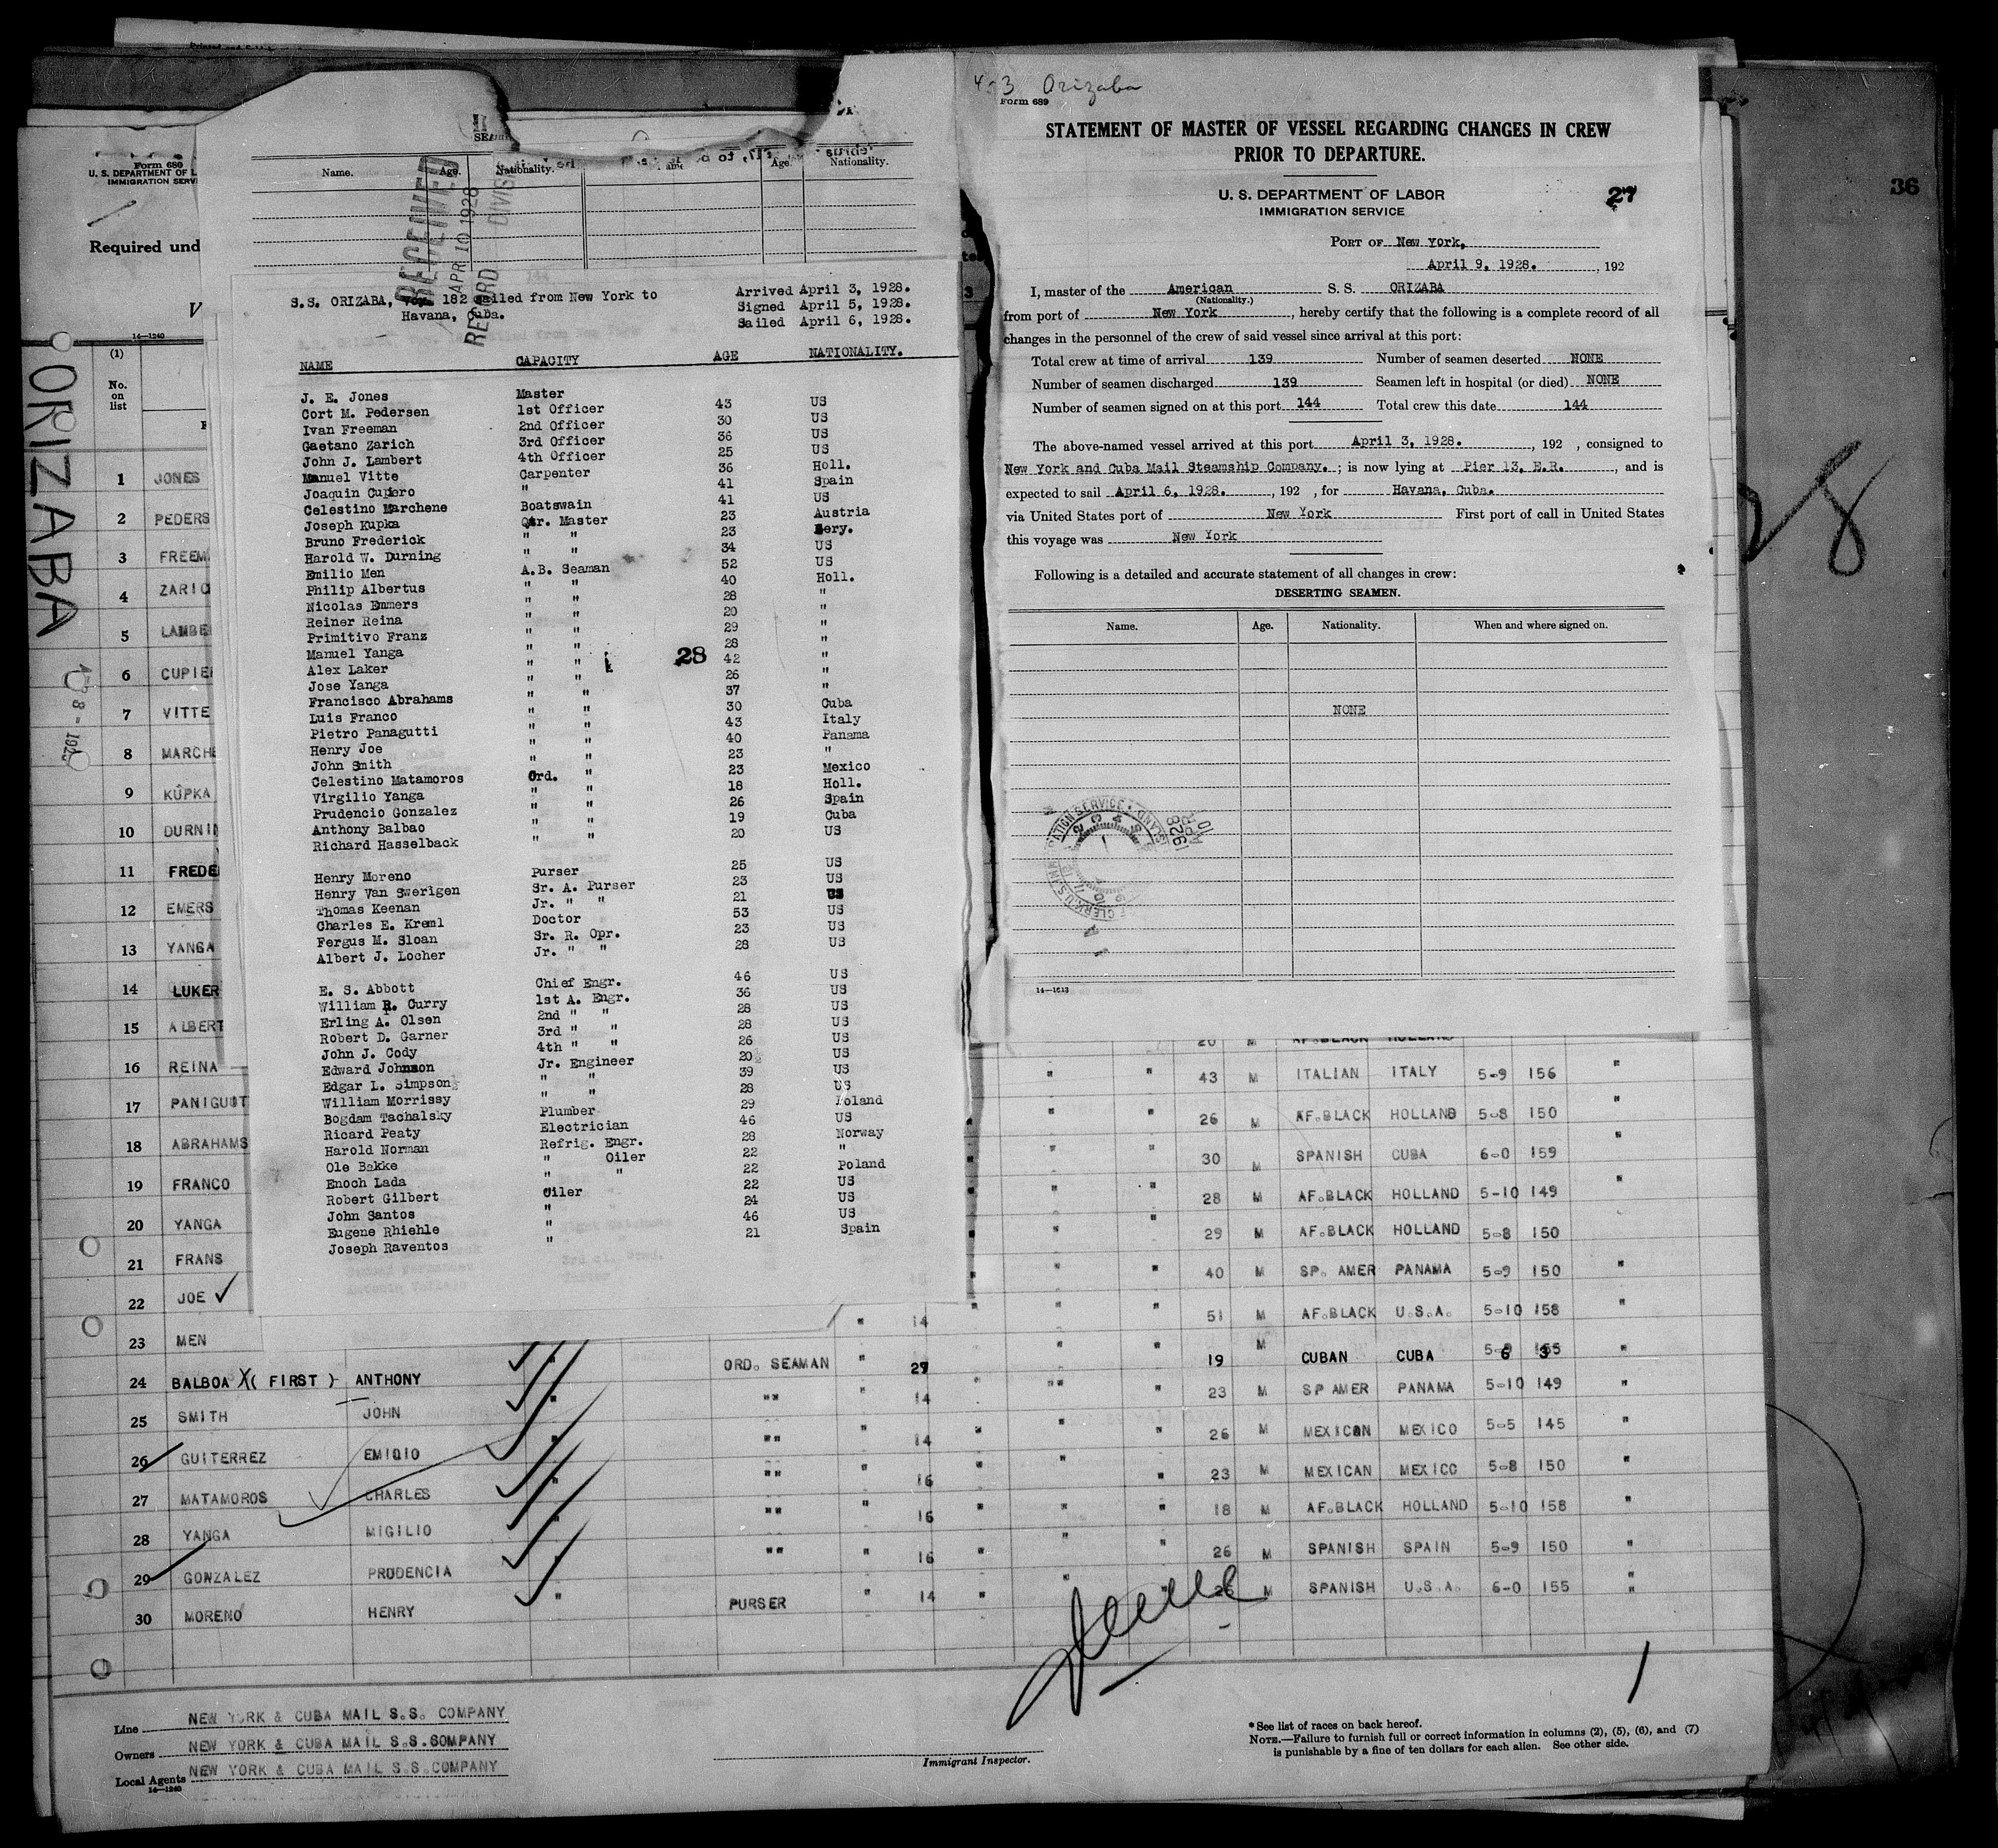 Form 680
U. S. DEPARTMENT OF L
IMMIGRATION SERV
Required und
14—1240
(1)
No. on list
ORIZABA
1 JONES
2 PEDERS
3 FREEM
4 ZARIC
5 LAMBE
6 CUPIE
7 VITTE
8 MARCHE
9 KUPKA
10 DURNIN
11 FREDE
12 EMERS
13 YANGA
14 LUKER
15 ALBERT
16 REINA
17 PANIGUOT
18 ABRAHAMS
19 FRANCO
20 YANGA
21 FRANS
22 JOE
23 MEN
Name. Age. Nationality. Age. Nationality.
RECEIVED
APR 10 1928
RECORD DIVIS
S.S. ORIZABA, voy. 182 sailed from New York to Havana, Cuba.
Arrived April 3, 1928.
Signed April 5, 1928.
Sailed April 6, 1928.
NAME CAPACITY AGE NATIONALITY.
J. E. Jones Master
Cort M. Pedersen 1st Officer 43 US
Ivan Freeman 2nd Officer 30 US
Gaetano Zarich 3rd Officer 36 US
John J. Lambert 4th Officer 25 US
Manuel Vitte Carpenter 36 Holl.
Joaquin Cupiero " 41 Spain
Celestino Marchene Boatswain 41 US
Joseph Kupka Qtr. Master 23 Austria
Bruno Frederick " " 23 Gery.
Harold W. Durning " " 34 US
Emilio Men A.B. Seaman 52 US
Philip Albertus " " 40 Holl.
Nicolas Emmers " " 28 "
Reiner Reina " " 20 "
Primitivo Franz " " 29 "
Manuel Yanga " " 28 "
Alex Laker " " 42 "
Jose Yanga " " 26 "
Francisco Abrahams " " 37 "
Luis Franco " " 30 Cuba
Pietro Panagutti " " 43 Italy
Henry Joe " " 40 Panama
John Smith " " 23 "
Celestino Matamoros Ord. " 23 Mexico
Virgilio Yanga " " 18 Holl.
Prudencio Gonzalez " " 26 Spain
Anthony Balbao " " 19 Cuba
Richard Hasselback " " 20 US
28
Henry Moreno Purser 25 US
Henry Van Swerigen Sr. A. Purser 23 US
Thomas Keenan Jr. " " 21 US
Charles E. Kreml Doctor 53 US
Fergus M. Sloan Sr. R. Opr. 23 US
Albert J. Locher Jr. " " 28 US
E. S. Abbott Chief Engr. 46 US
William R. Curry 1st A. Engr. 36 US
Erling A. Olsen 2nd " " 28 US
Robert D. Garner 3rd " " 28 US
John J. Cody 4th " " 26 US
Edward Johnson Jr. Engineer 20 US
Edgar L. Simpson " " 39 US
William Morrissy " " 28 US
Bogdam Tachalsky Plumber 29 Poland
Ricard Peaty Electrician 46 US
Harold Norman Refrig. Engr. 28 Norway
Ole Bakke " Oiler 22 "
Enoch Lada " " 22 Poland
Robert Gilbert Oiler 22 US
John Santos " 24 US
Eugene Rhiehle " 46 US
Joseph Raventos " 21 Spain
Orizaba
Form 689
STATEMENT OF MASTER OF VESSEL REGARDING CHANGES IN CREW
PRIOR TO DEPARTURE.
U. S. DEPARTMENT OF LABOR
IMMIGRATION SERVICE
27
PORT OF New York,
April 9, 1928. , 192
I, master of the American S. S. ORIZABA
(Nationality.)
from port of New York, hereby certify that the following is a complete record of all
changes in the personnel of the crew of said vessel since arrival at this port:
Total crew at time of arrival 139 Number of seamen deserted NONE
Number of seamen discharged 139 Seamen left in hospital (or died) NONE
Number of seamen signed on at this port 144 Total crew this date 144
The above-named vessel arrived at this port April 3, 1928. , 192 , consigned to
New York and Cuba Mail Steamship Company. ; is now lying at Pier 13, E.R. , and is
expected to sail April 6, 1928. , 192 , for Havana, Cuba.
via United States port of New York First port of call in United States
this voyage was New York
Following is a detailed and accurate statement of all changes in crew:
DESERTING SEAMEN.
Name. Age. Nationality. When and where signed on.
NONE
1928 APR 10
14—1613
36
28
20 M AF.BLACK HOLLAND
" " 43 M ITALIAN ITALY 5-9 156 "
" " 26 M AF.BLACK HOLLAND 5-8 150 "
" " 30 M SPANISH CUBA 6-0 159 "
" " 28 M AF.BLACK HOLLAND 5-10 149 "
" " 29 M AF.BLACK HOLLAND 5-8 150
" " 40 M SP. AMER PANAMA 5-9 150 "
" 14 " " " 51 M AF.BLACK U.S.A. 5-10 158 "
24 BALBOA X( FIRST ) ANTHONY " ORD. SEAMAN " 27 " " 19 M CUBAN CUBA "
25 SMITH JOHN " "" " 14 "" " 23 M SP AMER PANAMA 5-10 149 "
26 GUITERREZ EMIDIO " "" " 14 " " " 26 M MEXICAN MEXICO 5-5 145 "
27 MATAMOROS CHARLES " "" " 16 " " " 23 M MEXICAN MEXICO 5-8 150 "
28 YANGA MIGILIO " "" " 16 " " " 18 M AF.BLACK HOLLAND 5-10 158 "
29 GONZALEZ PRUDENCIA " "" " 16 " " 26 M SPANISH SPAIN 5-9 150 "
30 MORENO HENRY " PURSER " 14 " " M SPANISH U.S.A. 6-0 155 "
Line NEW YORK & CUBA MAIL S.S. COMPANY
Owners NEW YORK & CUBA MAIL S.S.COMPANY
Local Agents NEW YORK & CUBA MAIL S.S.COMPANY
14—1240
Immigrant Inspector.
* See list of races on back hereof.
NOTE.—Failure to furnish full or correct information in columns (2), (5), (6), and (7)
is punishable by a fine of ten dollars for each alien. See other side.